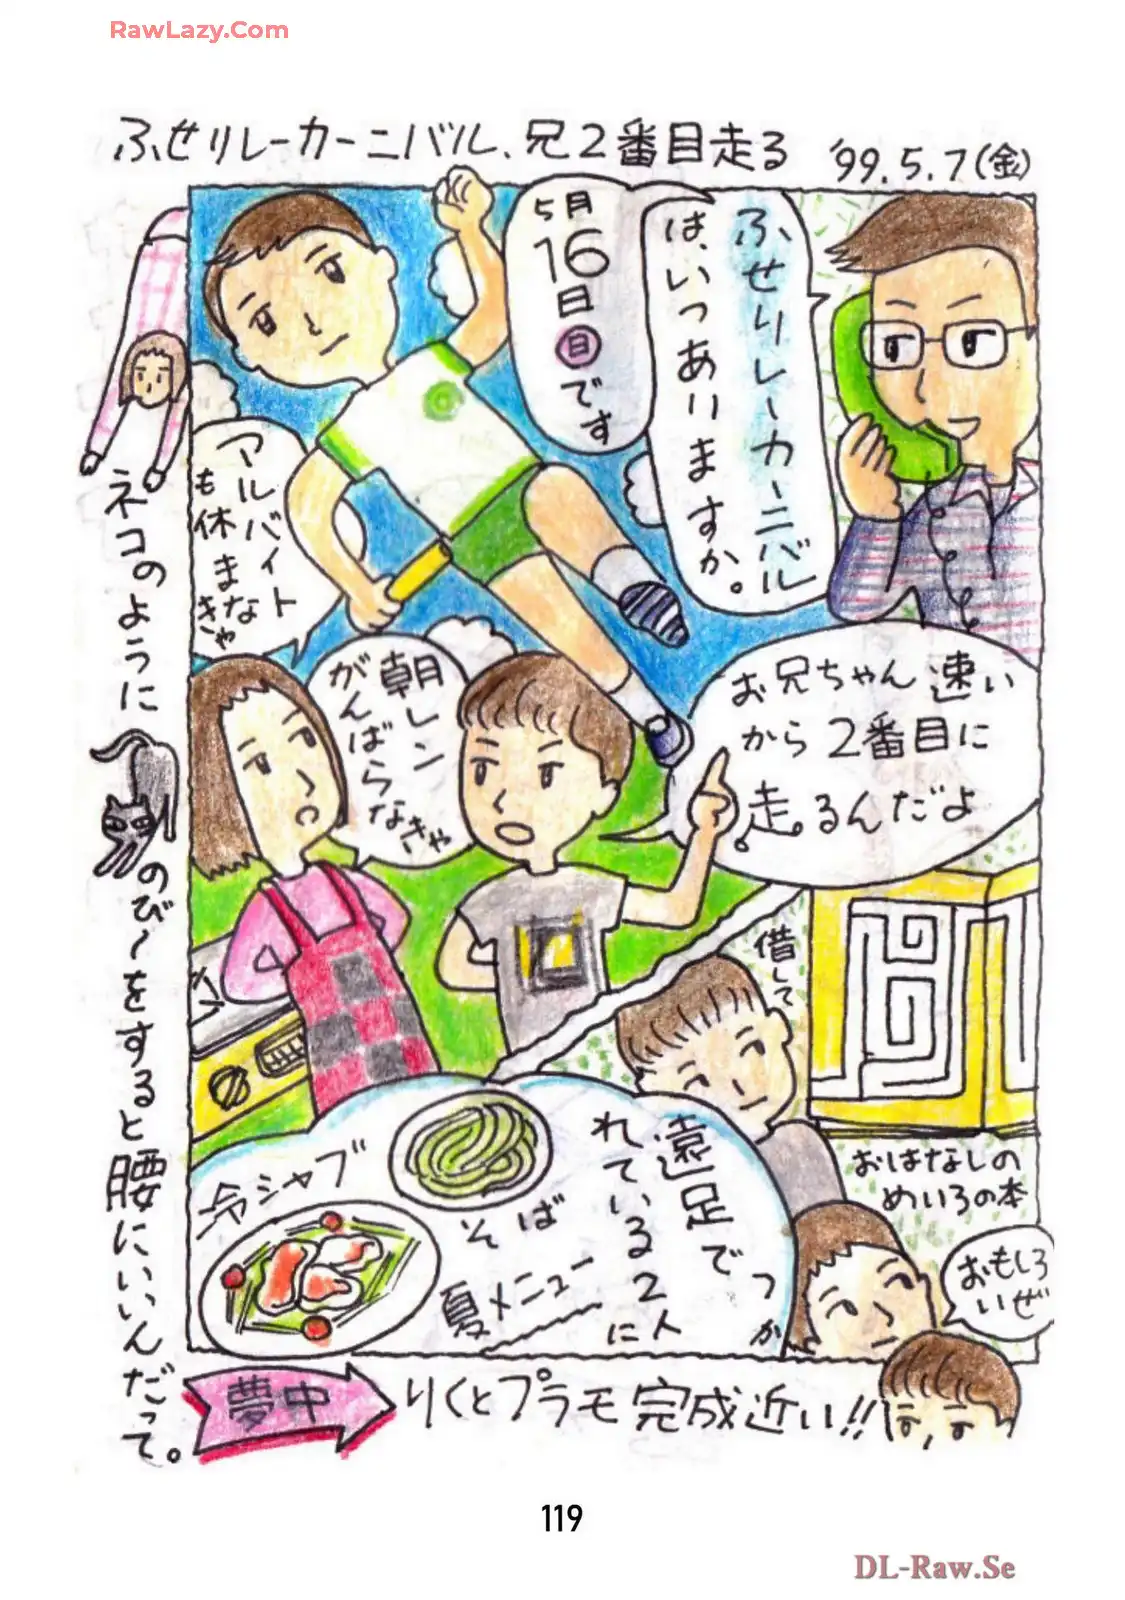 RawLazy.Com
ふせリレーカーニバル、兄2番目走る
'99.5.7(金)
ふせリレーカーニバル
は、いつありますか。
5月
16
日
日
です
アルバイト
も休
まな
きゃ
朝レン
がんばらな
きゃ
お兄ちゃん速い
から2番目に
走るんだよ
借して
おはなしの
めいろの本
おもしろ
いぜ
遠足でつか
れている2人
に
そば
冷シャブ
夏メニュー
ネコのように
のび〜をすると腰にいいんだって。
夢中
りくとプラモ完成近い!!
119
DL-Raw.Se